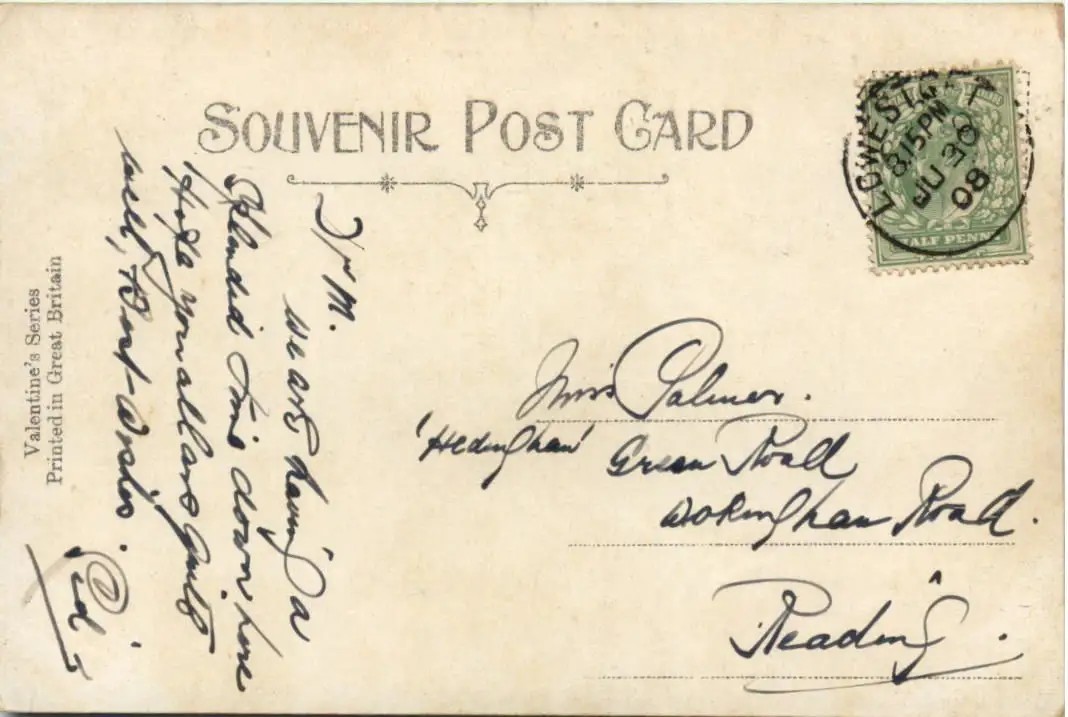 SOUVENIR POST CARD
LOWESTOFT
8.15 PM
JU 30
08
HALF PENNY
D/r M.
we are having a
splendid time down here
Hope you all are quite
well, Best-wishes.
Sid
Miss Palmer.
'Hedingham' Green Road
Wokingham Road.
Reading.
Valentine's Series
Printed in Great Britain